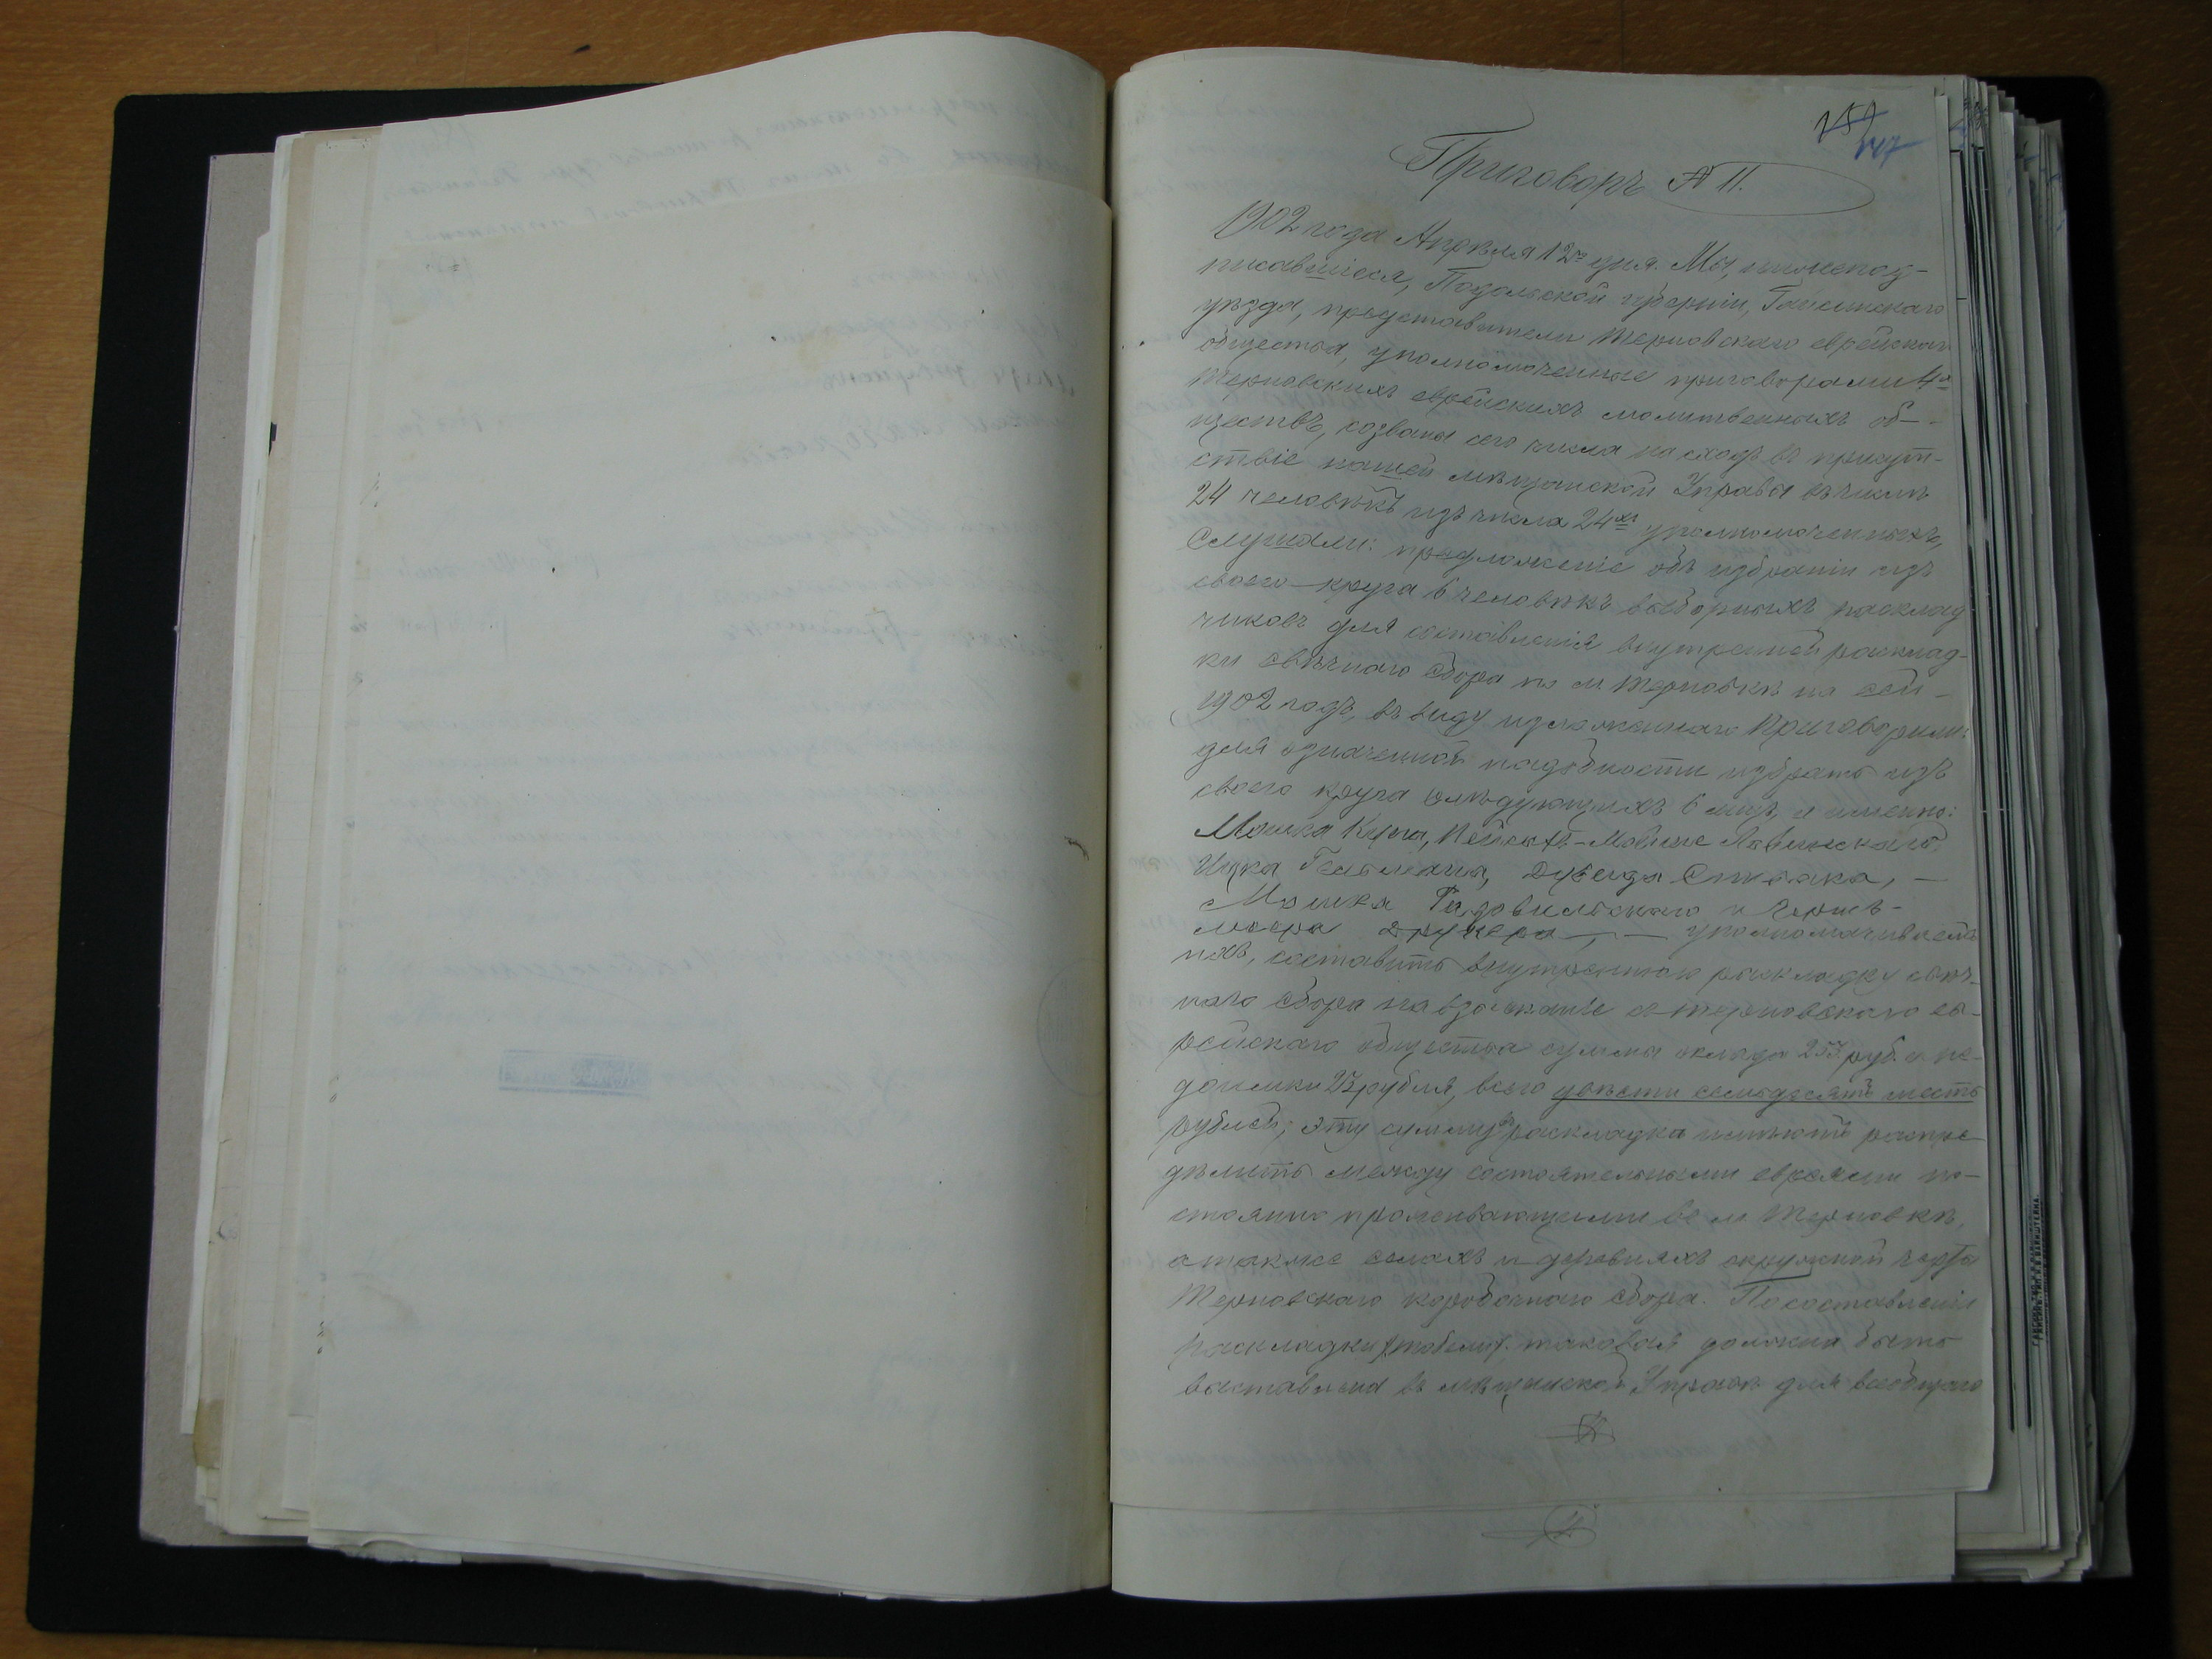 147
Приговоръ № 11.
1902 года Апрѣля 12го дня. Мы, нижепод-
писавшіеся, Подольской губерніи, Гайсинскаго
уѣзда, представители Терновскаго еврейскаго
общества, уполномоченные приговорами 4х
Терновскихъ еврейскихъ молитвенныхъ об-
ществъ, созваны сего числа на сходъ въ присут-
ствіе нашей мѣщанской Управы въ числѣ
24 человѣкъ изъ числа 24хъ уполномоченныхъ,
Слушали: предложеніе объ избраніи изъ
своего круга 6 человѣкъ выборныхъ расклад-
чиковъ для составленія внутренней расклад-
ки свѣчнаго сбора по м. Терновкѣ на сей
1902 годъ, въ виду изложеннаго Приговорили:
для означенной надобности избрать изъ
своего круга слѣдующихъ 6 лицъ, а именно:
Мошка Мовше
Ицка Дувида
Мошка и Герш-
уполномачиваемъ
ихъ, составить внутреннюю раскладку свѣч-
наго сбора на взысканіе съ Терновскаго ев-
рейскаго общества суммы оклада руб. и не-
доимки рубля, всего двѣсти семьдесятъ шесть
рублей; эту сумму раскладка имѣютъ распре-
дѣлить между состоятельными евреями по-
стоянно проживающими въ м. Терновкѣ,
а также селахъ и деревняхъ окружной черты
Терновскаго коробочнаго сбора. По составленіи
раскладки таковая должна быть
выставлена въ мѣщанской Управѣ для всеобщаго